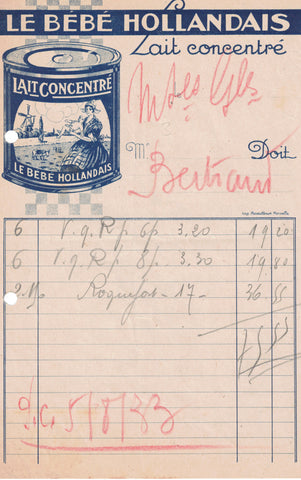 LE BÉBÉ HOLLANDAIS
Lait concentré
LAIT CONCENTRÉ
LE BEBE HOLLANDAIS
M Doit
Bertrand
6 V.q.R p 6p 3,20 19 20
6 V.q.R p 8p 3.30 19 80
Roquefort - 17 - 36 55
75 55
5/8/33